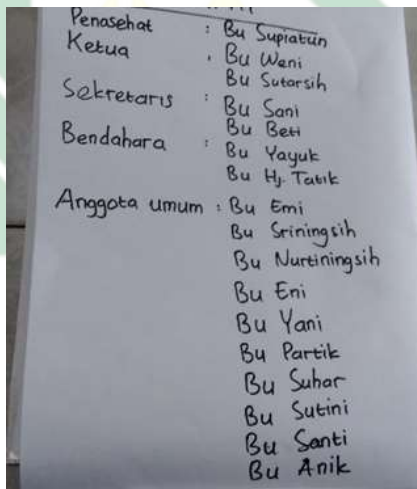 Penasehat : Bu Supiatun
Ketua : Bu Weni
Bu Sutarsih
Sekretaris : Bu Sani
Bu Beti
Bendahara : Bu Yayuk
Bu Hj. Tatik
Anggota umum : Bu Emi
Bu Sriningsih
Bu Nurtiningsih
Bu Eni
Bu Yani
Bu Partik
Bu Suhar
Bu Sutini
Bu Santi
Bu Anik